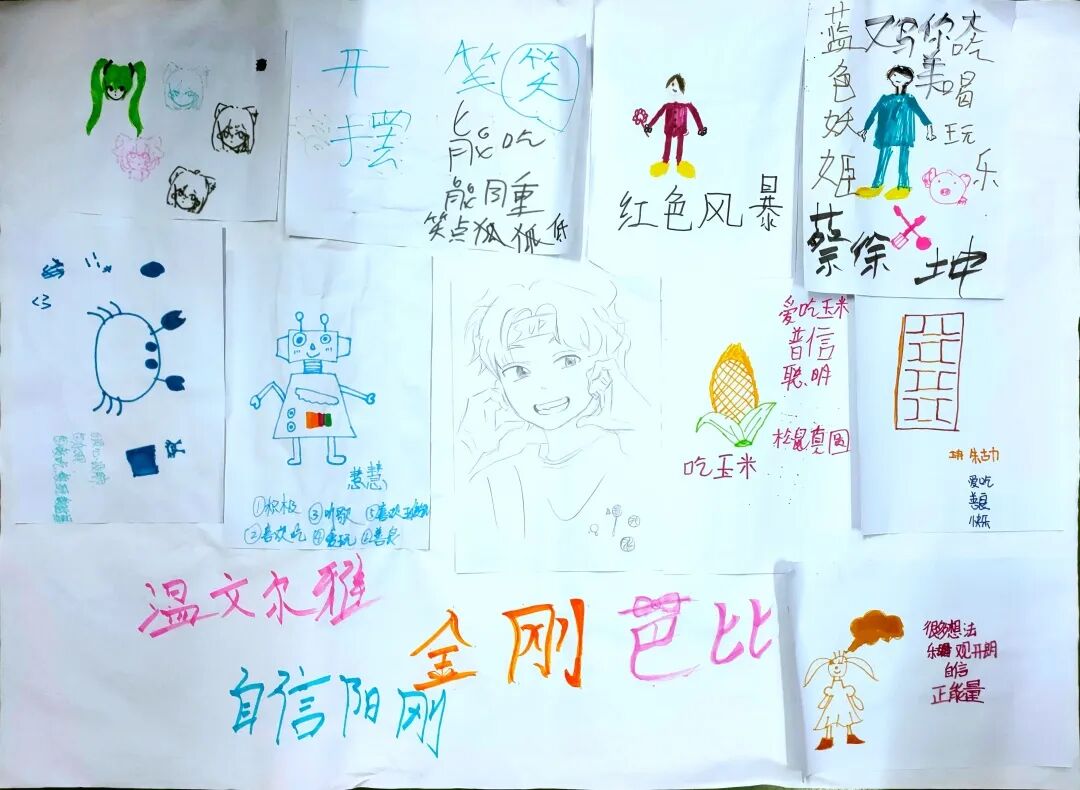 开
摆
笑 笑
能吃
能睡
笑点狐狐低
红色风暴
蓝色妖姬
又写你
吃
喝
玩
乐
蔡徐坤
<3
慧慧
①积极
②喜欢吃
③听歌
④爱玩
⑥善良
爱吃玉米
普信
聪明
松鼠真圆
吃玉米
朱古力
爱吃
善良
快乐
温文尔雅
金刚芭比
自信阳刚
很多想法
乐观开朗
自信
正能量